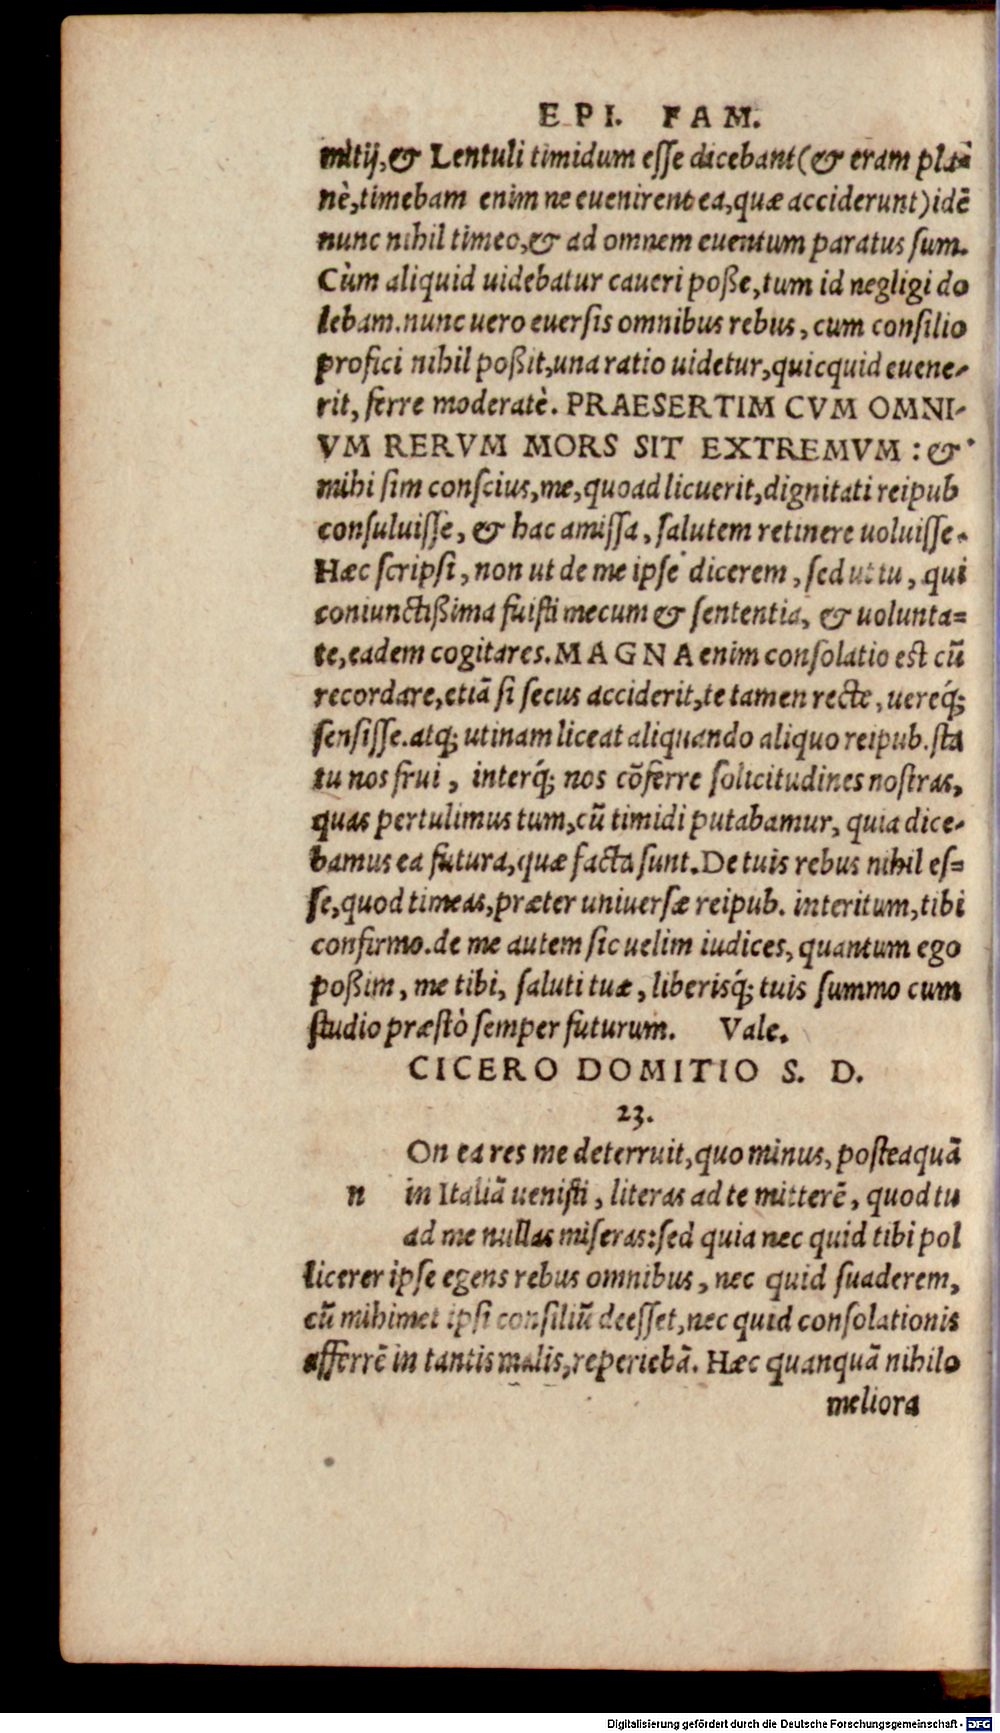 EPI. FAM.
mitij, & Lentuli timidum esse dicebant (& eram pla-
nè, timebam enim ne euenirent ea, quæ acciderunt) idē
nunc nihil timeo, & ad omnem euentum paratus sum.
Cùm aliquid uidebatur caueri poße, tum id negligi do
lebam. nunc uero euersis omnibus rebus, cum consilio
profici nihil poßit, una ratio uidetur, quicquid euene-
rit, ferre moderatè. PRAESERTIM CVM OMNI-
VM RERVM MORS SIT EXTREMVM: &
mihi sim conscius, me, quoad licuerit, dignitati reipub
consuluisse, & hac amissa, salutem retinere uoluisse.
Hæc scripsi, non ut de me ipse dicerem, sed ut tu, qui
coniunctißima fuisti mecum & sententia, & uolunta=
te, eadem cogitares. MAGNA enim consolatio est cū
recordare, etiā si secus acciderit, te tamen recte, uereq́;
sensisse. atq; utinam liceat aliquando aliquo reipub. sta
tu nos frui, interq́; nos cōferre solicitudines nostras,
quas pertulimus tum, cū timidi putabamur, quia dice-
bamus ea futura, quæ facta sunt. De tuis rebus nihil es=
se, quod timeas, præter uniuersæ reipub. interitum, tibi
confirmo. de me autem sic uelim iudices, quantum ego
poßim, me tibi, saluti tuæ, liberisq́; tuis summo cum
studio præstò semper futurum. Vale.
CICERO DOMITIO S. D.
23.
On ea res me deterruit, quo minus, posteaquā
n in Italiā uenisti, literas ad te mitterē, quod tu
ad me nullas miseras: sed quia nec quid tibi pol
licerer ipse egens rebus omnibus, nec quid suaderem,
cū mihimet ipsi consiliū deesset, nec quid consolationis
afferrē in tantis malis, reperiebā. Hæc quanquā nihilo
meliora
Digitalisierung gefördert durch die Deutsche Forschungsgemeinschaft - DFG